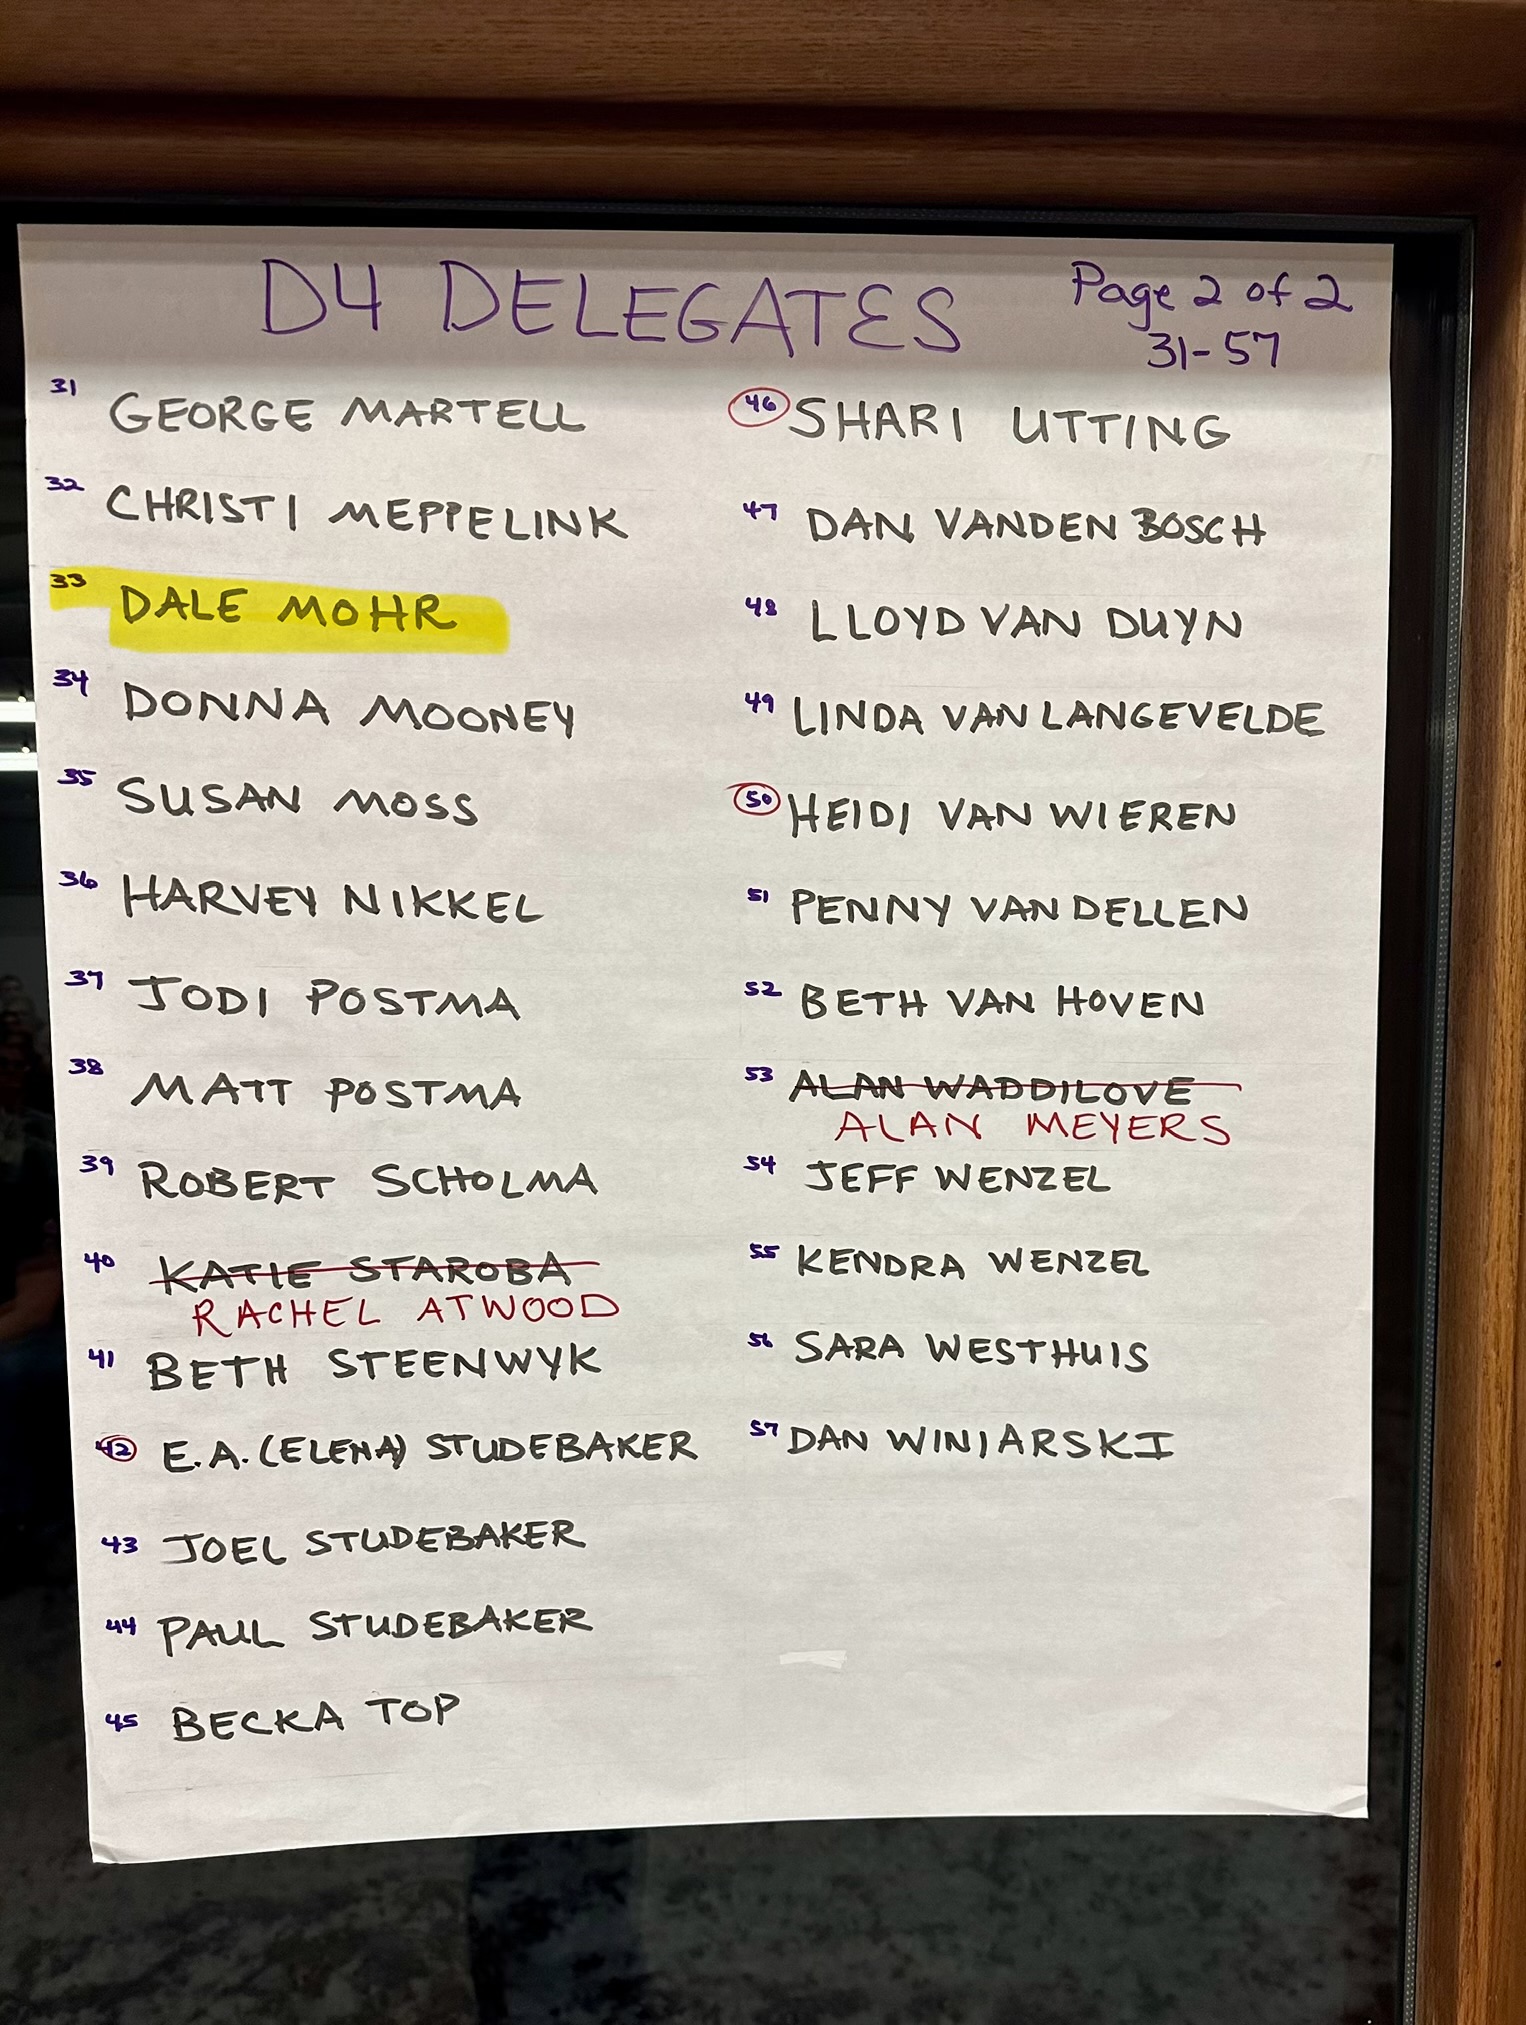 D4 DELEGATES
Page 2 of 2
31-57
31 GEORGE MARTELL
32 CHRISTI MEPPELINK
33 DALE MOHR
34 DONNA MOONEY
35 SUSAN MOSS
36 HARVEY NIKKEL
37 JODI POSTMA
38 MATT POSTMA
39 ROBERT SCHOLMA
40 KATIE STAROBA
RACHEL ATWOOD
41 BETH STEENWYK
42 E.A. (ELENA) STUDEBAKER
43 JOEL STUDEBAKER
44 PAUL STUDEBAKER
45 BECKA TOP
46 SHARI UTTING
47 DAN VANDEN BOSCH
48 LLOYD VAN DUYN
49 LINDA VAN LANGEVELDE
50 HEIDI VAN WIEREN
51 PENNY VAN DELLEN
52 BETH VAN HOVEN
53 ALAN WADDILOVE
ALAN MEYERS
54 JEFF WENZEL
55 KENDRA WENZEL
56 SARA WESTHUIS
57 DAN WINIARSKI